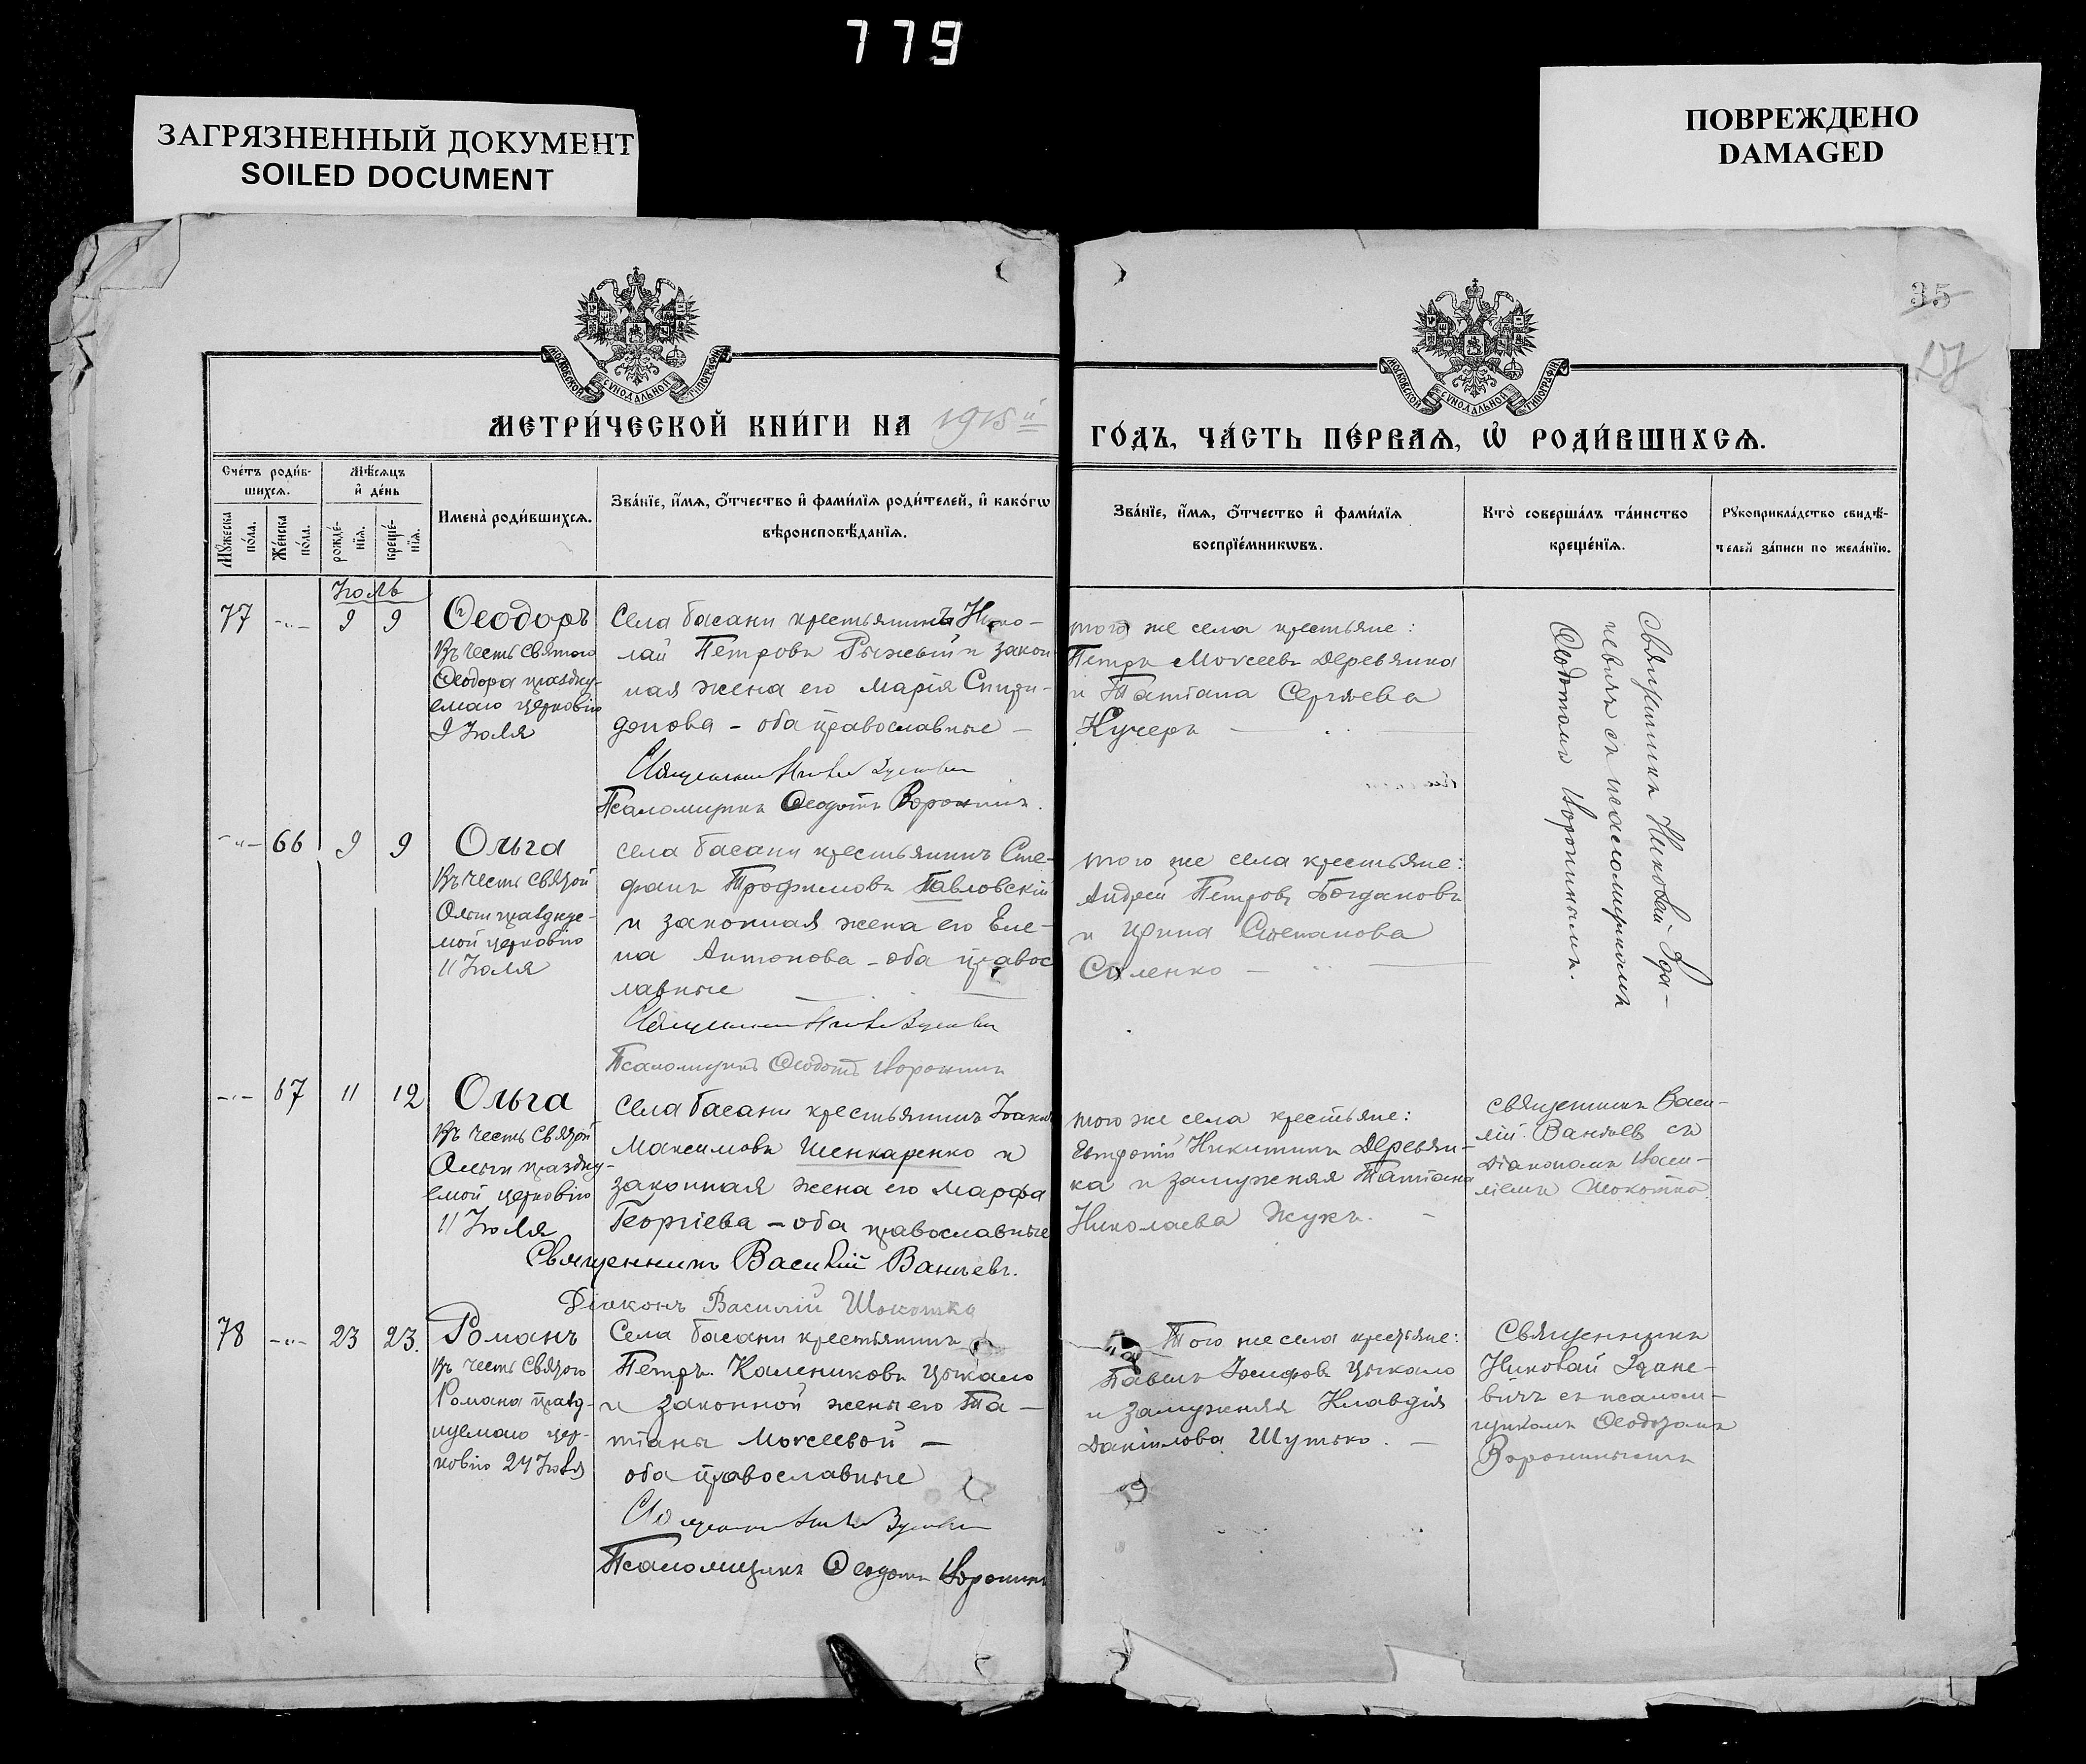 779
ЗАГРЯЗНЕННЫЙ ДОКУМЕНТ
SOILED DOCUMENT
ПОВРЕЖДЕНО
DAMAGED
35
МОСКОВСКОЙ СѴНОДАЛЬНОЙ ТИПОГРАФІИ
МОСКОВСКОЙ СѴНОДАЛЬНОЙ ТИПОГРАФІИ
МЕТРИ́ЧЕСКОЙ КНИ́ГИ НА 1915 й
ГО́ДЪ, ЧА́СТЬ ПЕ́РВАѦ, Ѽ РОДИ́ВШИХСѦ.
Сче́тъ роди́в-
шихсѧ.
Мѣсѧцъ
и҆ де́нь
Мꙋ́жеска
по́ла.
Же́нска
по́ла.
рожде́-
нїѧ.
креще́-
нїѧ.
И҆мена̀ роди́вшихсѧ.
Зва́нїе, и҆́мѧ, ѻ҆́тчество и҆ фами́лїѧ роди́телей, и҆ како́гѡ
вѣроисповѣ́данїѧ.
Зва́нїе, и҆́мѧ, ѻ҆́тчество и҆ фами́лїѧ
воспрїе́мникѡвъ.
Кто̀ соверша́лъ та́инство
креще́нїѧ.
Рꙋкоприкла́дство свидѣ́-
телей за́писи по жела́нїю.
Іюль
77 -"- 9 9
Ѳеодоръ
Въ честь святого
Ѳеодора праздну-
емаго церковію
9 Іюля
Села Басани крестьянинъ Нико-
лай Петровъ Рыжый и закон
ная жена его Марія Спири-
донова - оба православные -
Священникъ
Псаломщикъ Ѳеодотъ Воронинъ.
того же села крестьяне:
Петръ Моисеевъ Деревянка
и Татіана Сергѣева
Кучеръ
Священникъ Николай Зда-
невичъ съ псаломщикомъ
Ѳеодотомъ Воронинымъ.
-"- 66 9 9
Ольга
Въ честь святой
Ольги праздуе-
мой церковію
11 Іюля
Села Басани крестьянинъ Сте-
фанъ Трофимовъ Павловскій
и законная жена его Еле-
на Антонова - оба правос
лавные
Священникъ
Псаломщикъ Ѳеодотъ Воронинъ
того же села крестьяне:
Андрей Петровъ Богдановъ
и Ирина Степанова
-"- 67 11 12
Ольга
Въ честь святой
Ольги праздну-
емой церковію
11 Іюля
Села Басани крестьянинъ Іоакимъ
Максимовъ Шенкаренко и
законная жена его Марфа
Георгіева - оба православные
Священникъ Василій Ваньевъ.
Діаконъ Василій Шокотко
того же села крестьяне:
Евтропій Никитинъ Деревян-
ка и замужняя Татіана
Николаева Жукъ. -
Священникъ Васи-
лій Ваньевъ съ
Діакономъ Васи-
ліемъ Шокотко
78 -"- 23 23.
Романъ
Въ честь Святого
Романа празд-
нуемаго цер-
ковію 24 Іюля
Села Басани крестьянинъ
Петръ Калениковъ Цыкало
и законной жены его Та-
тіаны Моисеевой -
оба православные
Священникъ
Псаломщикъ Ѳеодотъ Воронинъ
Того же села крестьяне:
Павелъ Іосифовъ Цыкало
и замужняя Клавдія
Даніилова Шутько. -
Священникъ
Николай Здане-
вичъ съ псалом-
щикомъ Ѳеодотомъ
Воронинымъ